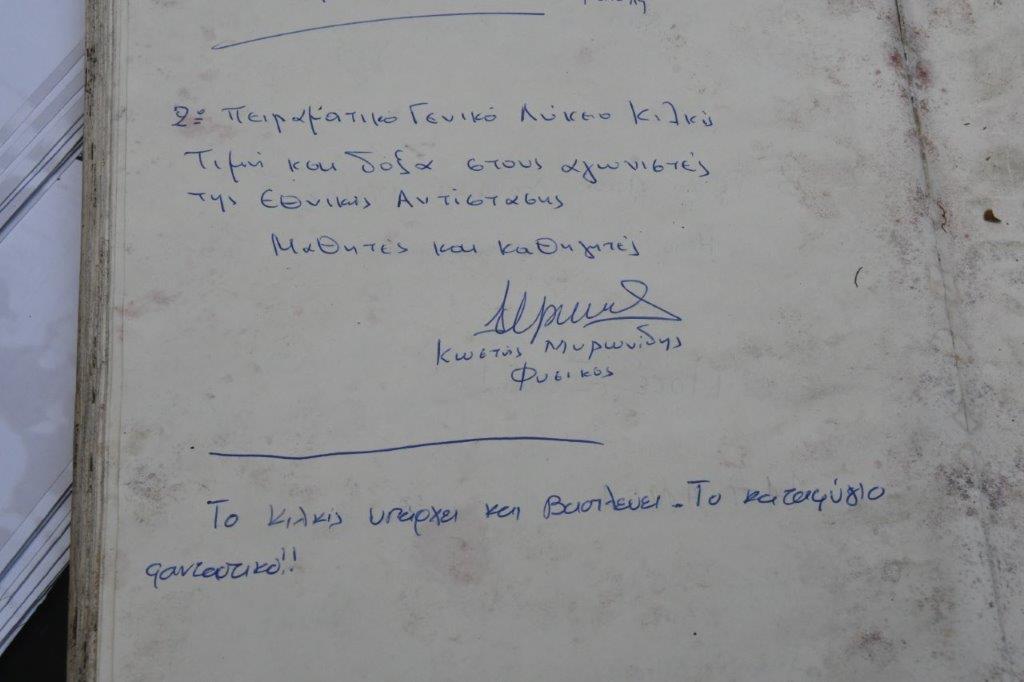 2ο Πειραματικό Γενικό Λύκειο Κιλκίς
Τιμή και δόξα στους αγωνιστές
της Εθνικής Αντίστασης
Μαθητές και καθηγητές
Κωστής Μυρωνίδης
Φυσικός
Το Κιλκίς υπάρχει και Βασιλεύει. Το καταφύγιο
φανταστικό!!